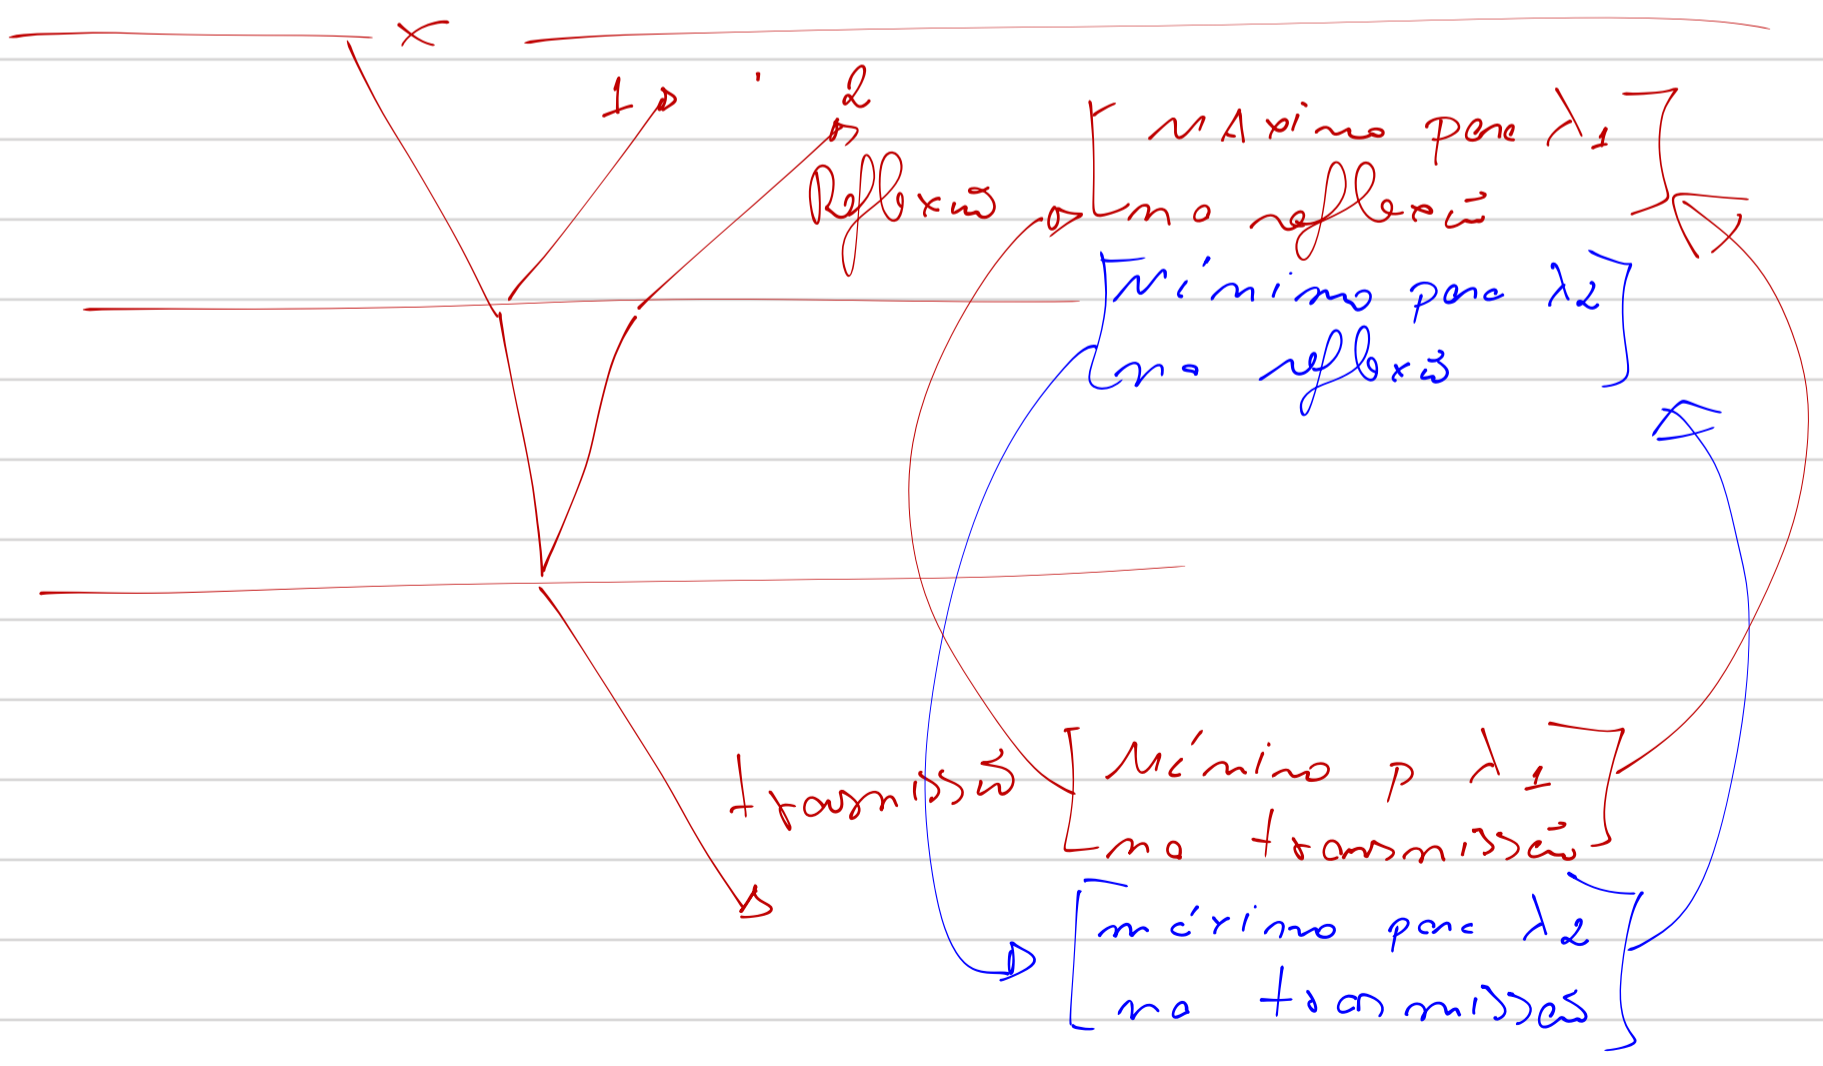 1 2
Reflexão
[MÁximo para λ1]
na reflexão
[Mínimo para λ2]
na reflexão
transmissão
[Mínimo p λ1]
na transmissão
[máximo para λ2]
na transmissão